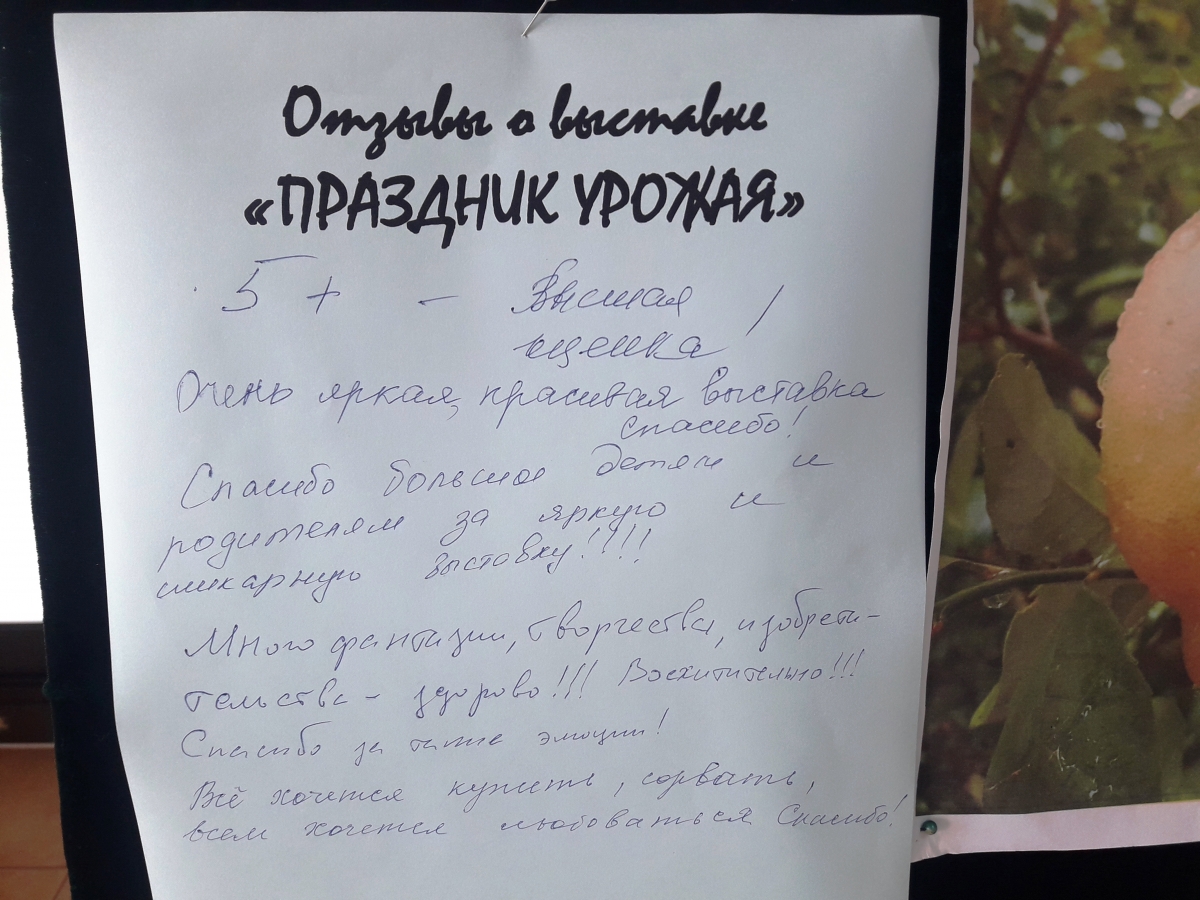 Отзывы о выставке
«ПРАЗДНИК УРОЖАЯ»
5+ - Высшая
оценка!
Очень яркая, красивая выставка
спасибо!
Спасибо большое детям и
родителям за яркую и
шикарную выставку!!!!
Много фантизии, творчества, изобрети-
тельства - здорово!!! Восхитительно!!!
Спасибо за такие эмоции!
Всё хочется купить, сорвать,
всем хочется любоваться Спасибо!